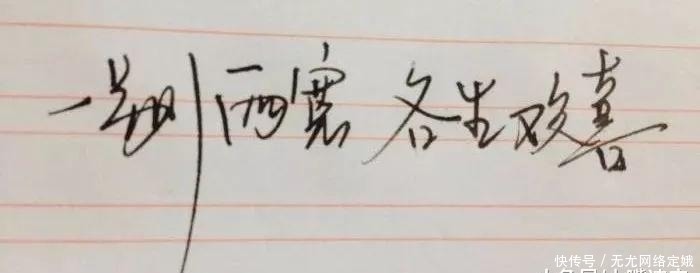 一别两宽 各生欢喜
快传号 / 无尤网络定娥